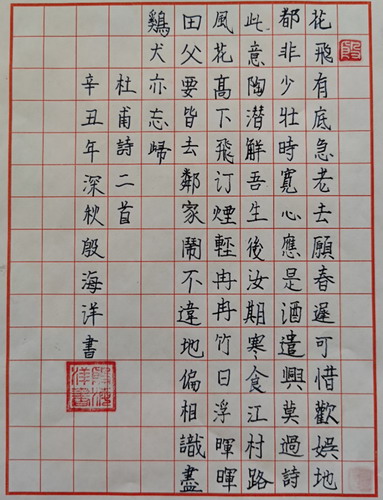 殷
花飛有底急老去願春遲可惜歡娛地
都非少壯時寬心應是酒遣興莫過詩
此意陶潛解吾生後汝期寒食江村路
風花高下飛汀煙輕冉冉竹日浮暉暉
田父要皆去鄰家鬧不違地偏相識盡
鷄犬亦忘歸
杜甫詩二首
辛丑年深秋殷海洋書
殷海洋書